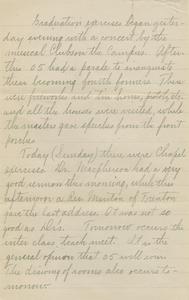 Graduation exercises began yester-
day evening with a concert by the
musical Clubs on the Campus. After
this 05 had a parade to inaugurate
their becoming fourth formers. There
were fireworks and
and all the houses were visited, while
the masters gave speeches from the front
porches.
Today (Sunday) there were Chapel
exercises. Dr. Macpherson had a very
good sermon this morning, while this
afternoon a Rev. Minton of Trenton
gave the last address. It was not so
good as Drs. Tomorrow occurs the
inter class track meet. It is the
general opinion that 05 will win.
The drawing of rooms also occurs to-
morrow